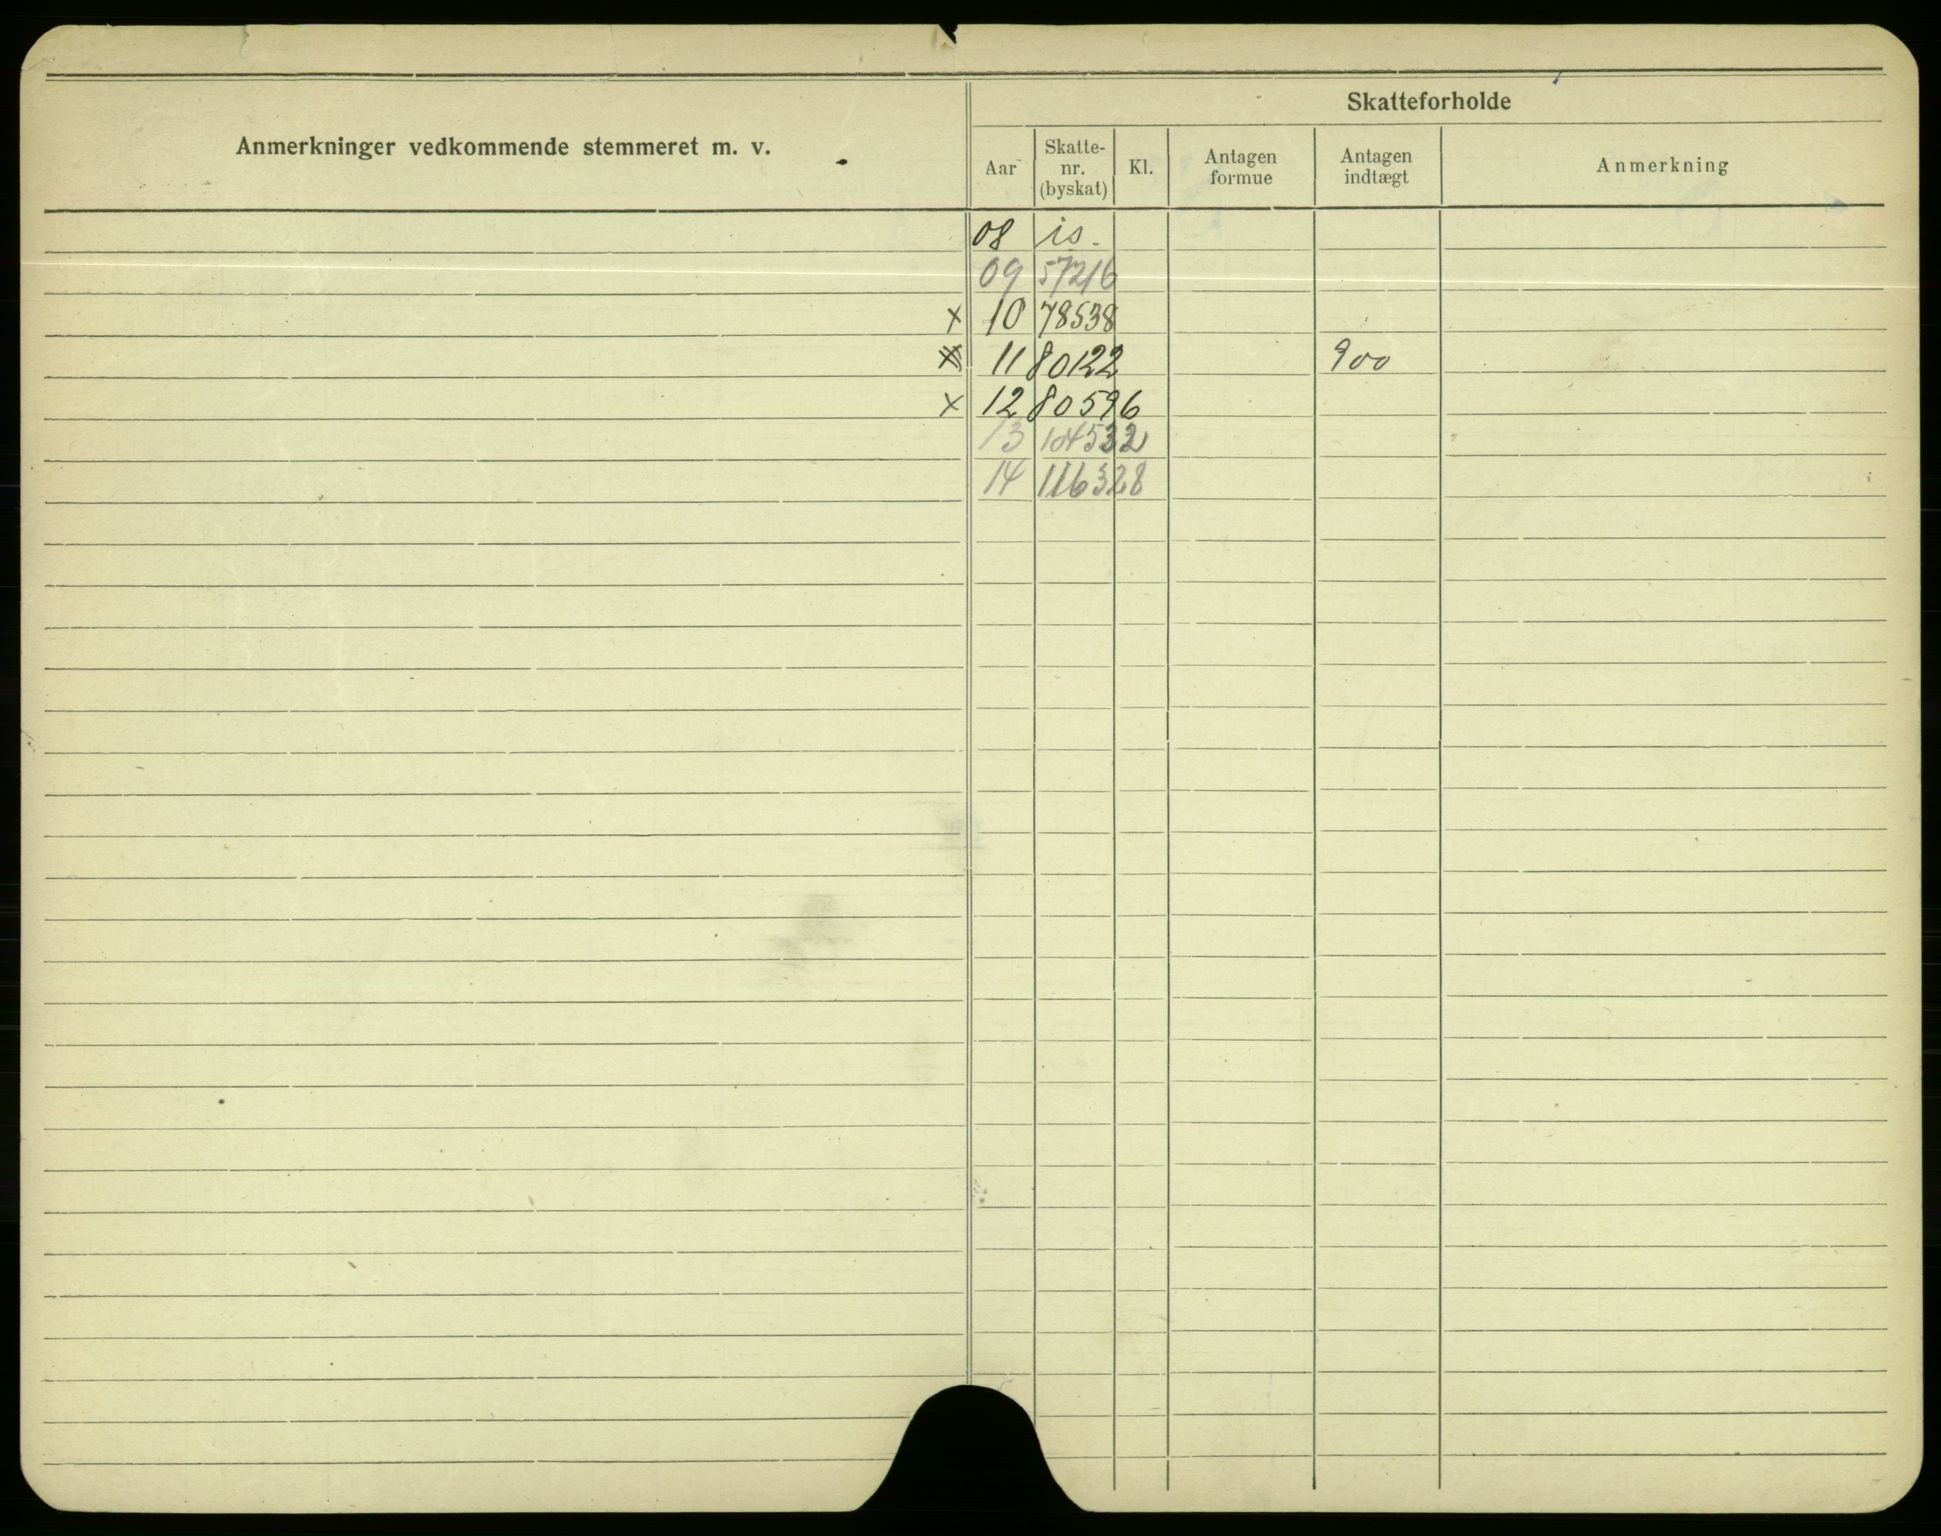 Anmerkninger vedkommende stemmeret m. v.
Skatteforholde
Aar
Skatte-
nr.
(byskat)
Kl.
Antagen
formue
Antagen
indtægt
Anmerkning
08 is.
09 57216
x 10 78538
x 11 80122 900
x 12 80596
13 104532
14 116328